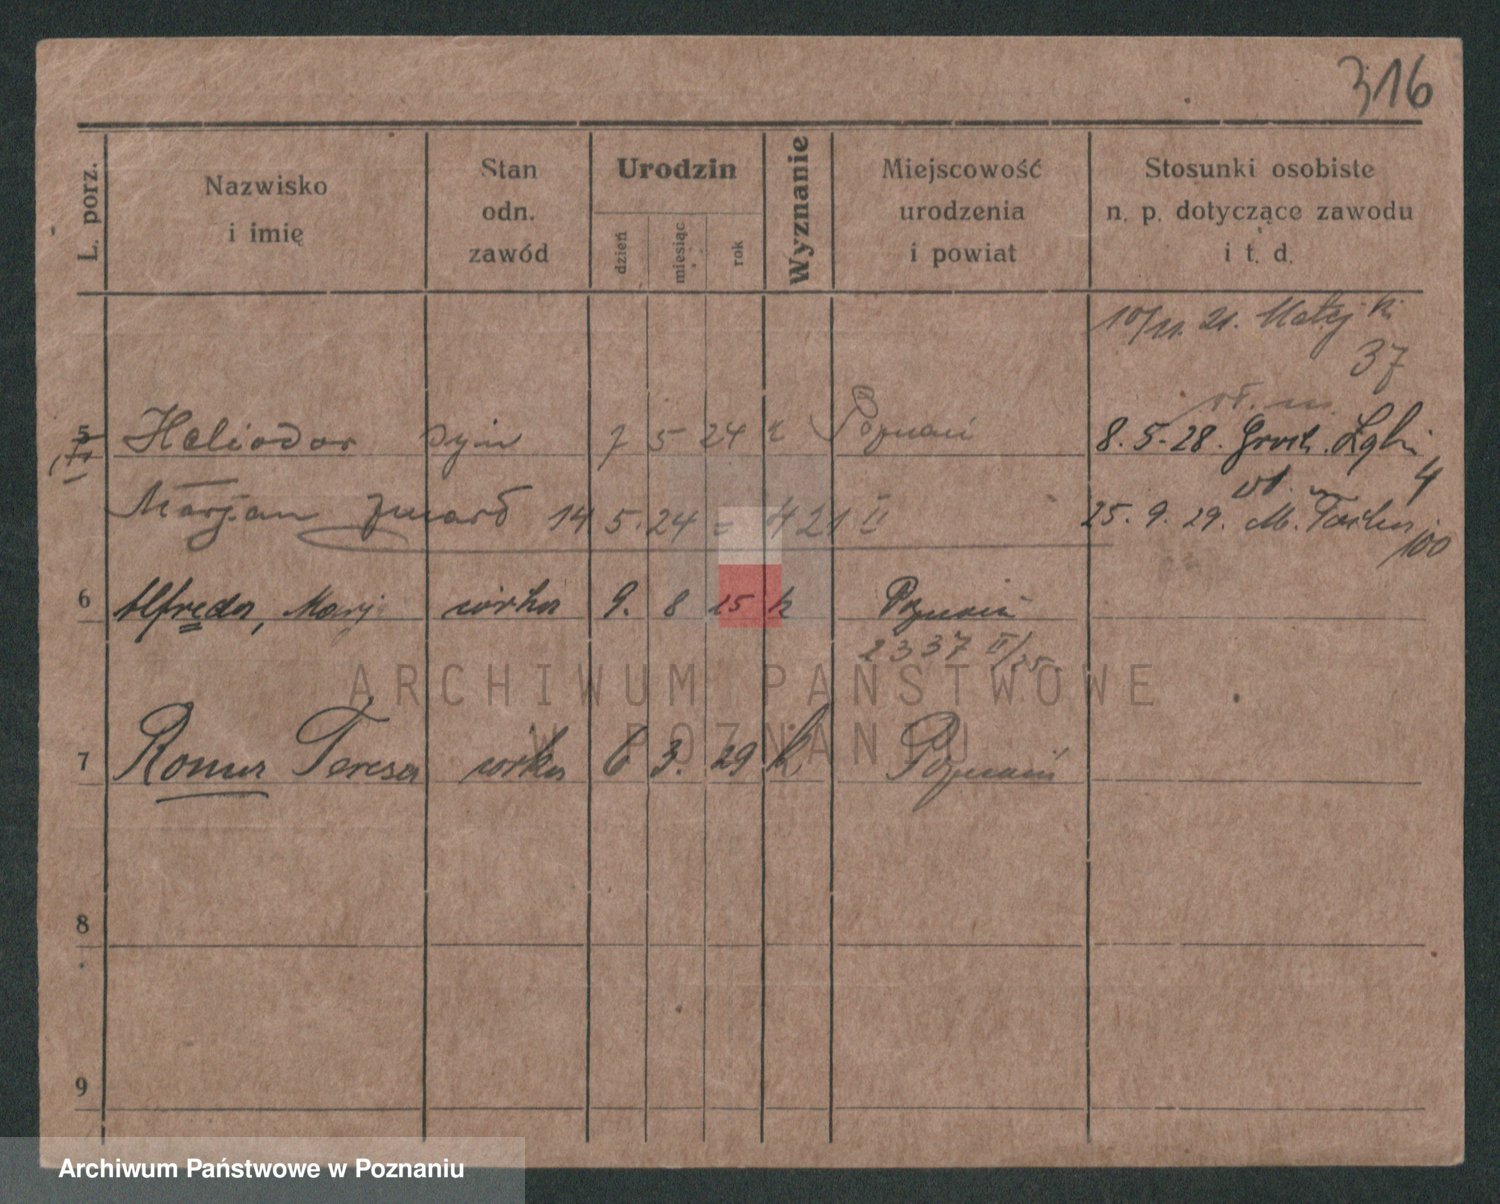 316
L. porz.
Nazwisko
i imię
Stan
odn.
zawód
Urodzin
dzień
miesiąc
rok
Wyznanie
Miejscowość
urodzenia
i powiat
Stosunki osobiste
n. p. dotyczące zawodu
i t. d.
10/11. 21. Matejki
37
5 Heliodor syn 7 5 24 k Poznań 8. 5. 28. Groch. Łąki
4
Marjan zmarł 14 5. 24 = 421 II 25. 9. 29. M. Focha
100
6 Alfreda, Marj córka 9. 8 25 k Poznań
2337 II/25
ARCHIWUM PAŃSTWOWE
W POZNANIU
7 Roma Teresa córka 6 3. 29 k. Poznań
8
9
Archiwum Państwowe w Poznaniu